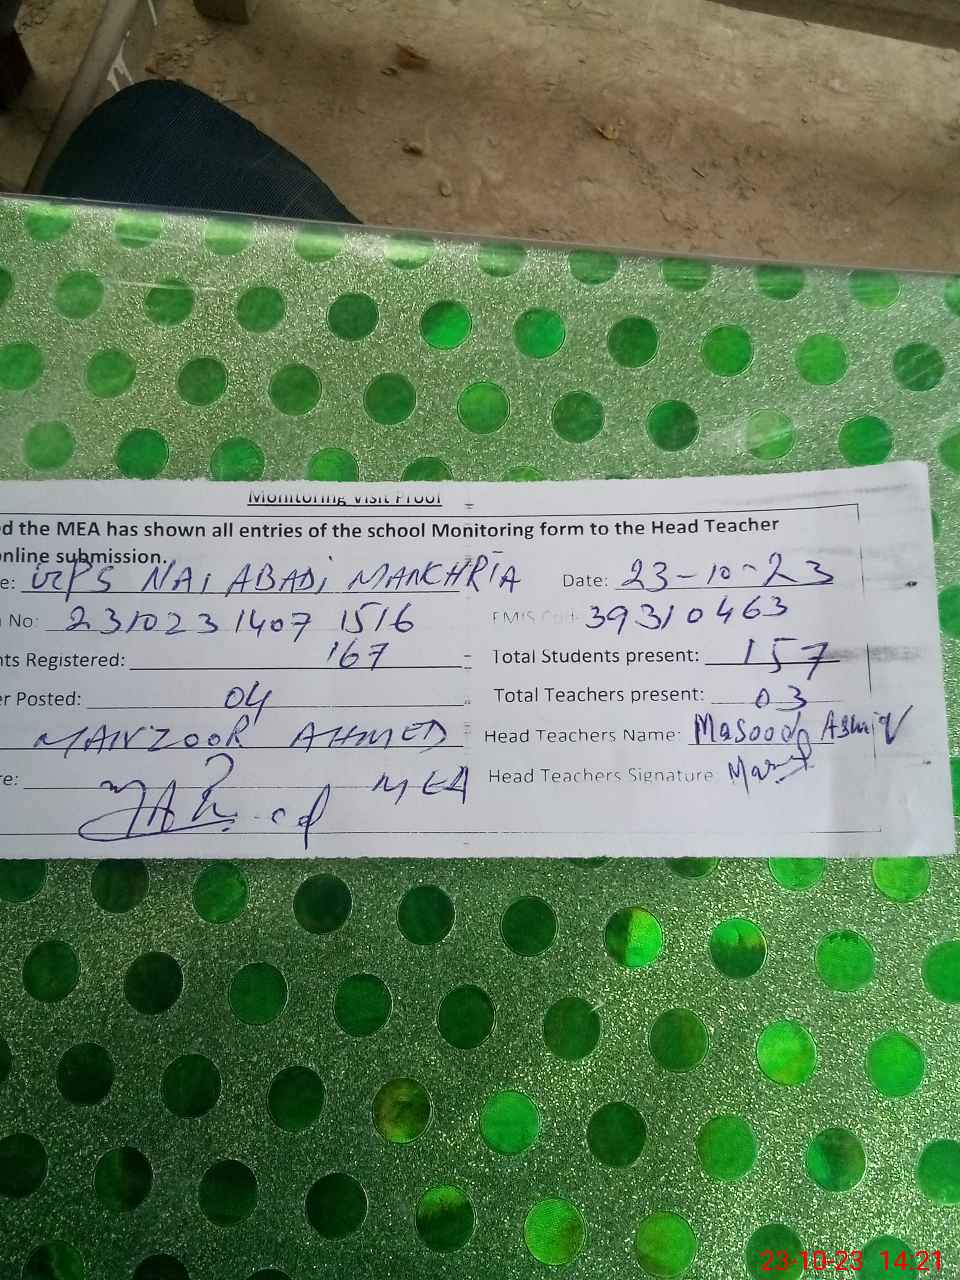 Monitoring Visit Proof
d the MEA has shown all entries of the school Monitoring form to the Head Teacher
nline submission.
e: GPS NAI ABADI MANCHRIA Date: 23-10-23
No: 231023 1407 1516 EMIS Code 39310463
nts Registered: 167 Total Students present: 157
er Posted: 04 Total Teachers present: 03
MANZOOR AHMED Head Teachers Name: Masood Ashiq
re: MEA Head Teachers Signature
23-10-23 14:21